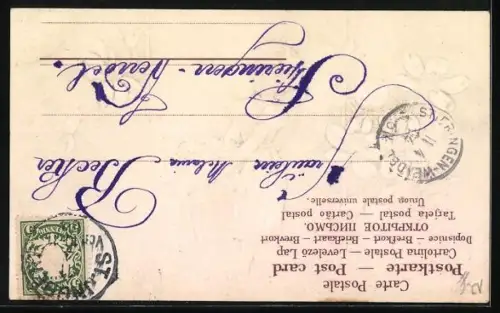 Carte Postale
Postkarte — Post card
Cartolina Postale — Levelező Lap
Dopisnice — Brefkort — Briefkaart — Brevkort
ОТКРЫТОЕ ПИСЬМО.
Tarjeta postal — Cartão postal
Union postale universelle.
Fräulein Melanie Becker
Stieringen-Wendel.
STIERINGEN-WENDEL
ST. JNGBERT
5 PFENNIG 5